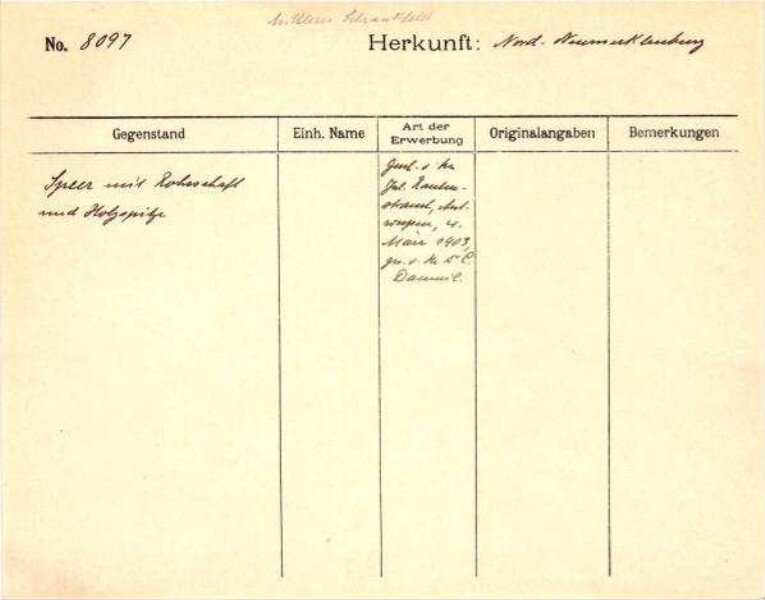 Mittleres Schrankfeld
No. 8097
Herkunft: Nord-Neumecklenburg
Gegenstand
Einh. Name
Art der Erwerbung
Originalangaben
Bemerkungen
Speer mit Rohrschaft
und Holzspitze
v. Hr.
Jul.
März 1903,
v. Hr Dr